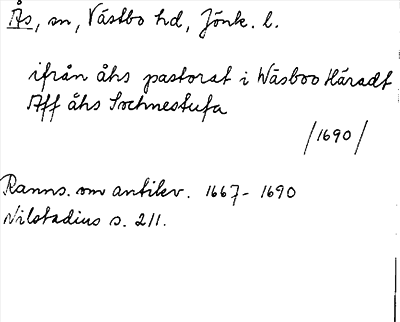 Ås, sn, Västbo hd, Jönk. l.
ifrån åhs pastorat i Wäsboo Häradt
Aff åhs Sochnestufa
/1690/
Ranns. om antikv. 1667-1690
Nilstadius s. 211.